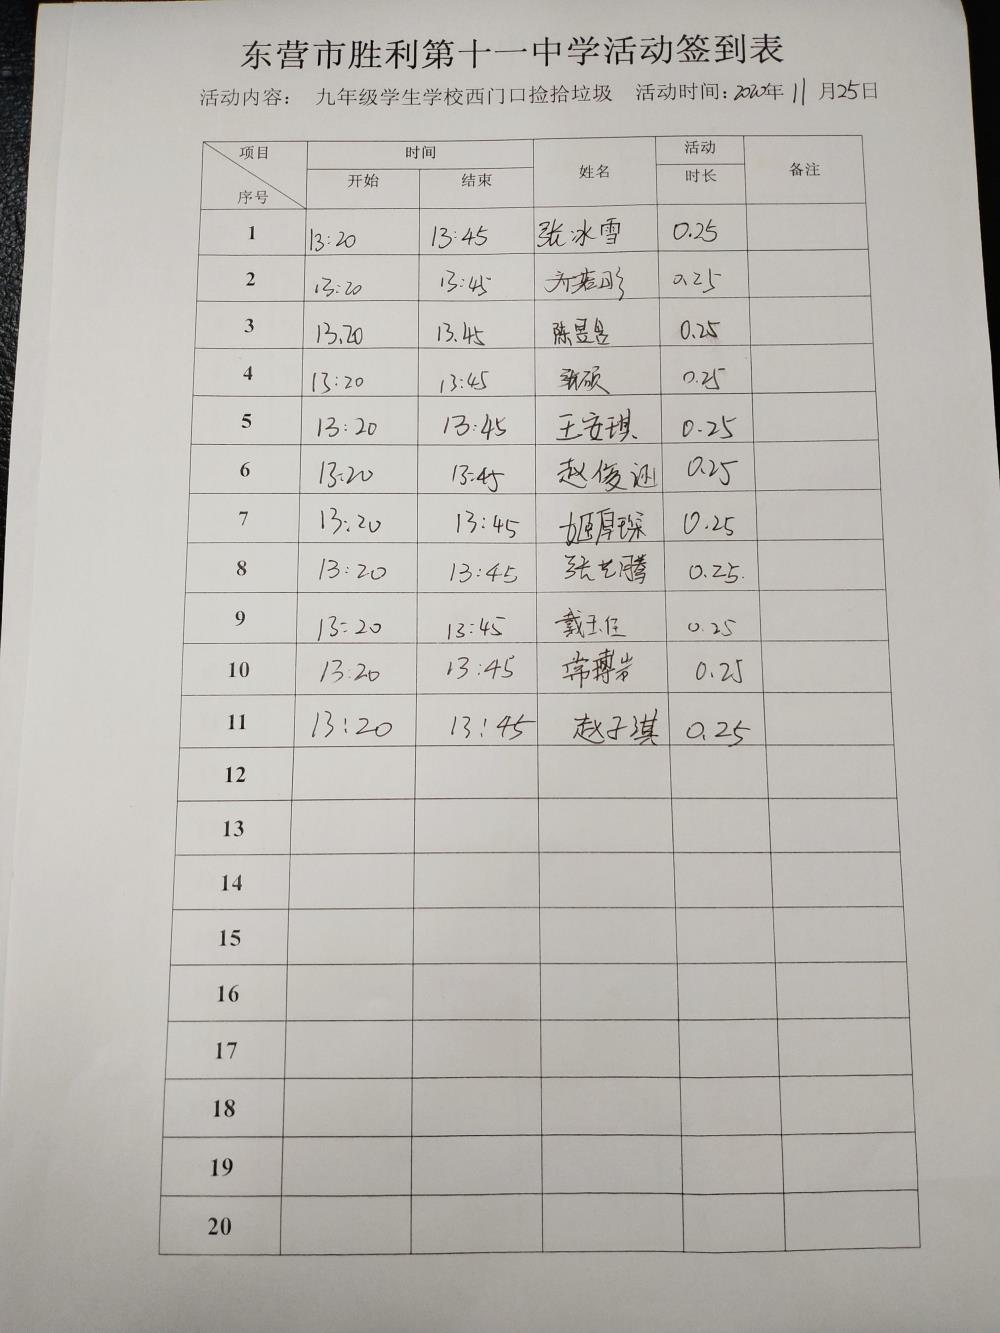 东营市胜利第十一中学活动签到表
活动内容： 九年级学生学校西门口捡拾垃圾 活动时间：2020年 11 月25日
项目 时间 姓名 活动 备注
序号 开始 结束 时长
1 13:20 13:45 张冰雪 0.25
2 13:20 13:45 0.25
3 13.20 13.45 陈昱 0.25
4 13:20 13:45 张硕 0.25
5 13:20 13:45 王安琪 0.25
6 13:20 13:45 赵俊 0.25
7 13:20 13:45 姬厚琛 0.25
8 13:20 13:45 张艺腾 0.25.
9 13:20 13:45 戴玉任 0.25
10 13:20 13:45 常博岩 0.25
11 13:20 13:45 赵子淇 0.25
12
13
14
15
16
17
18
19
20